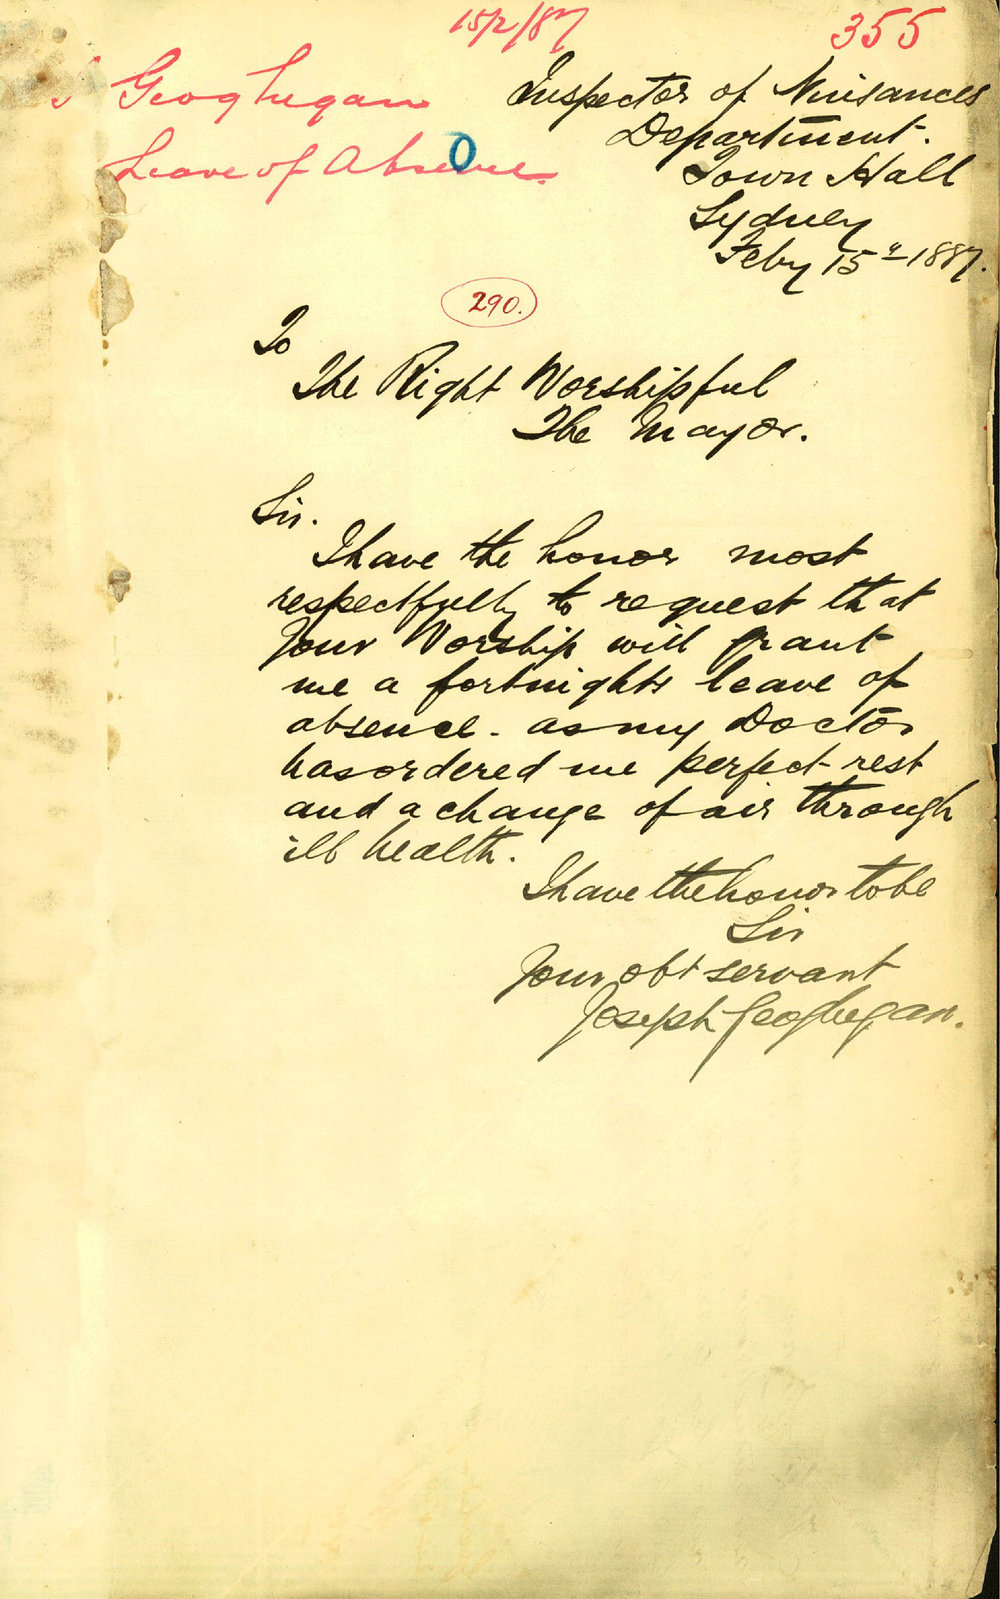 15/2/87
355
J Geoghegan
Leave of Absence.
Inspector of Nuisances
Department.
Town Hall
Sydney
Feby 15" 1887.
290.
To
The Right Worshipful
The Mayor.
Sir.
I have the honor most
respectfully to request that
Your Worship will grant
me a fortnights leave of
absence - as my Doctor
has ordered me perfect rest
and a change of air through
ill health.
I have the honor to be
Sir
Your obt servant
Joseph Geoghegan.